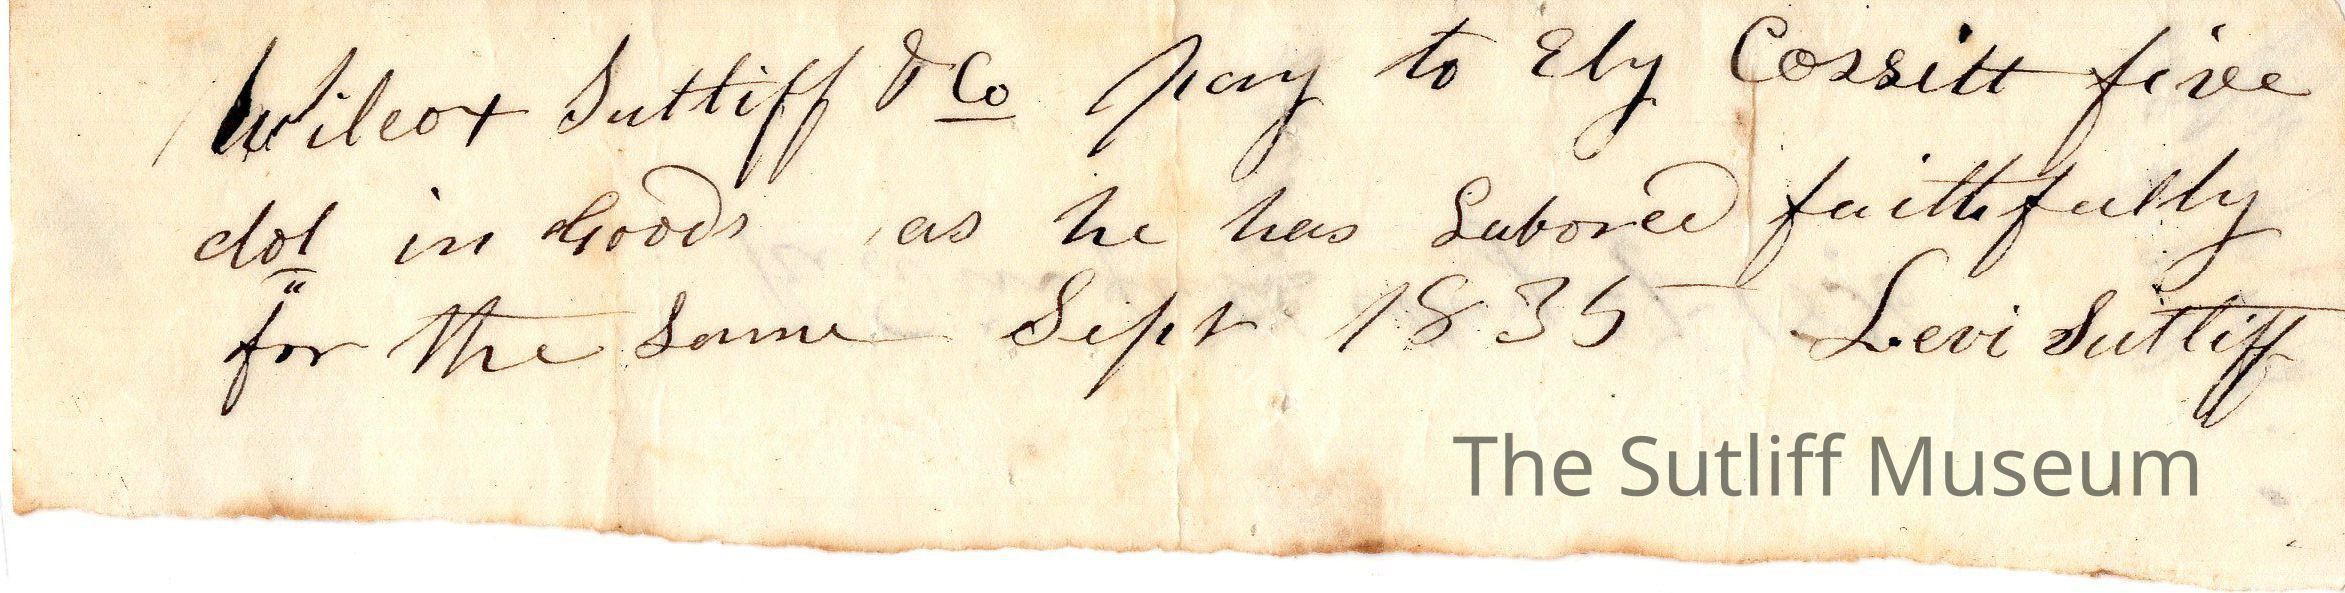 Wilcox Sutliff & Co pay to Ely Cossitt five
dol in Goods as he has Labored faithfully
for the Same Sept 1835 Levi Sutliff
The Sutliff Museum